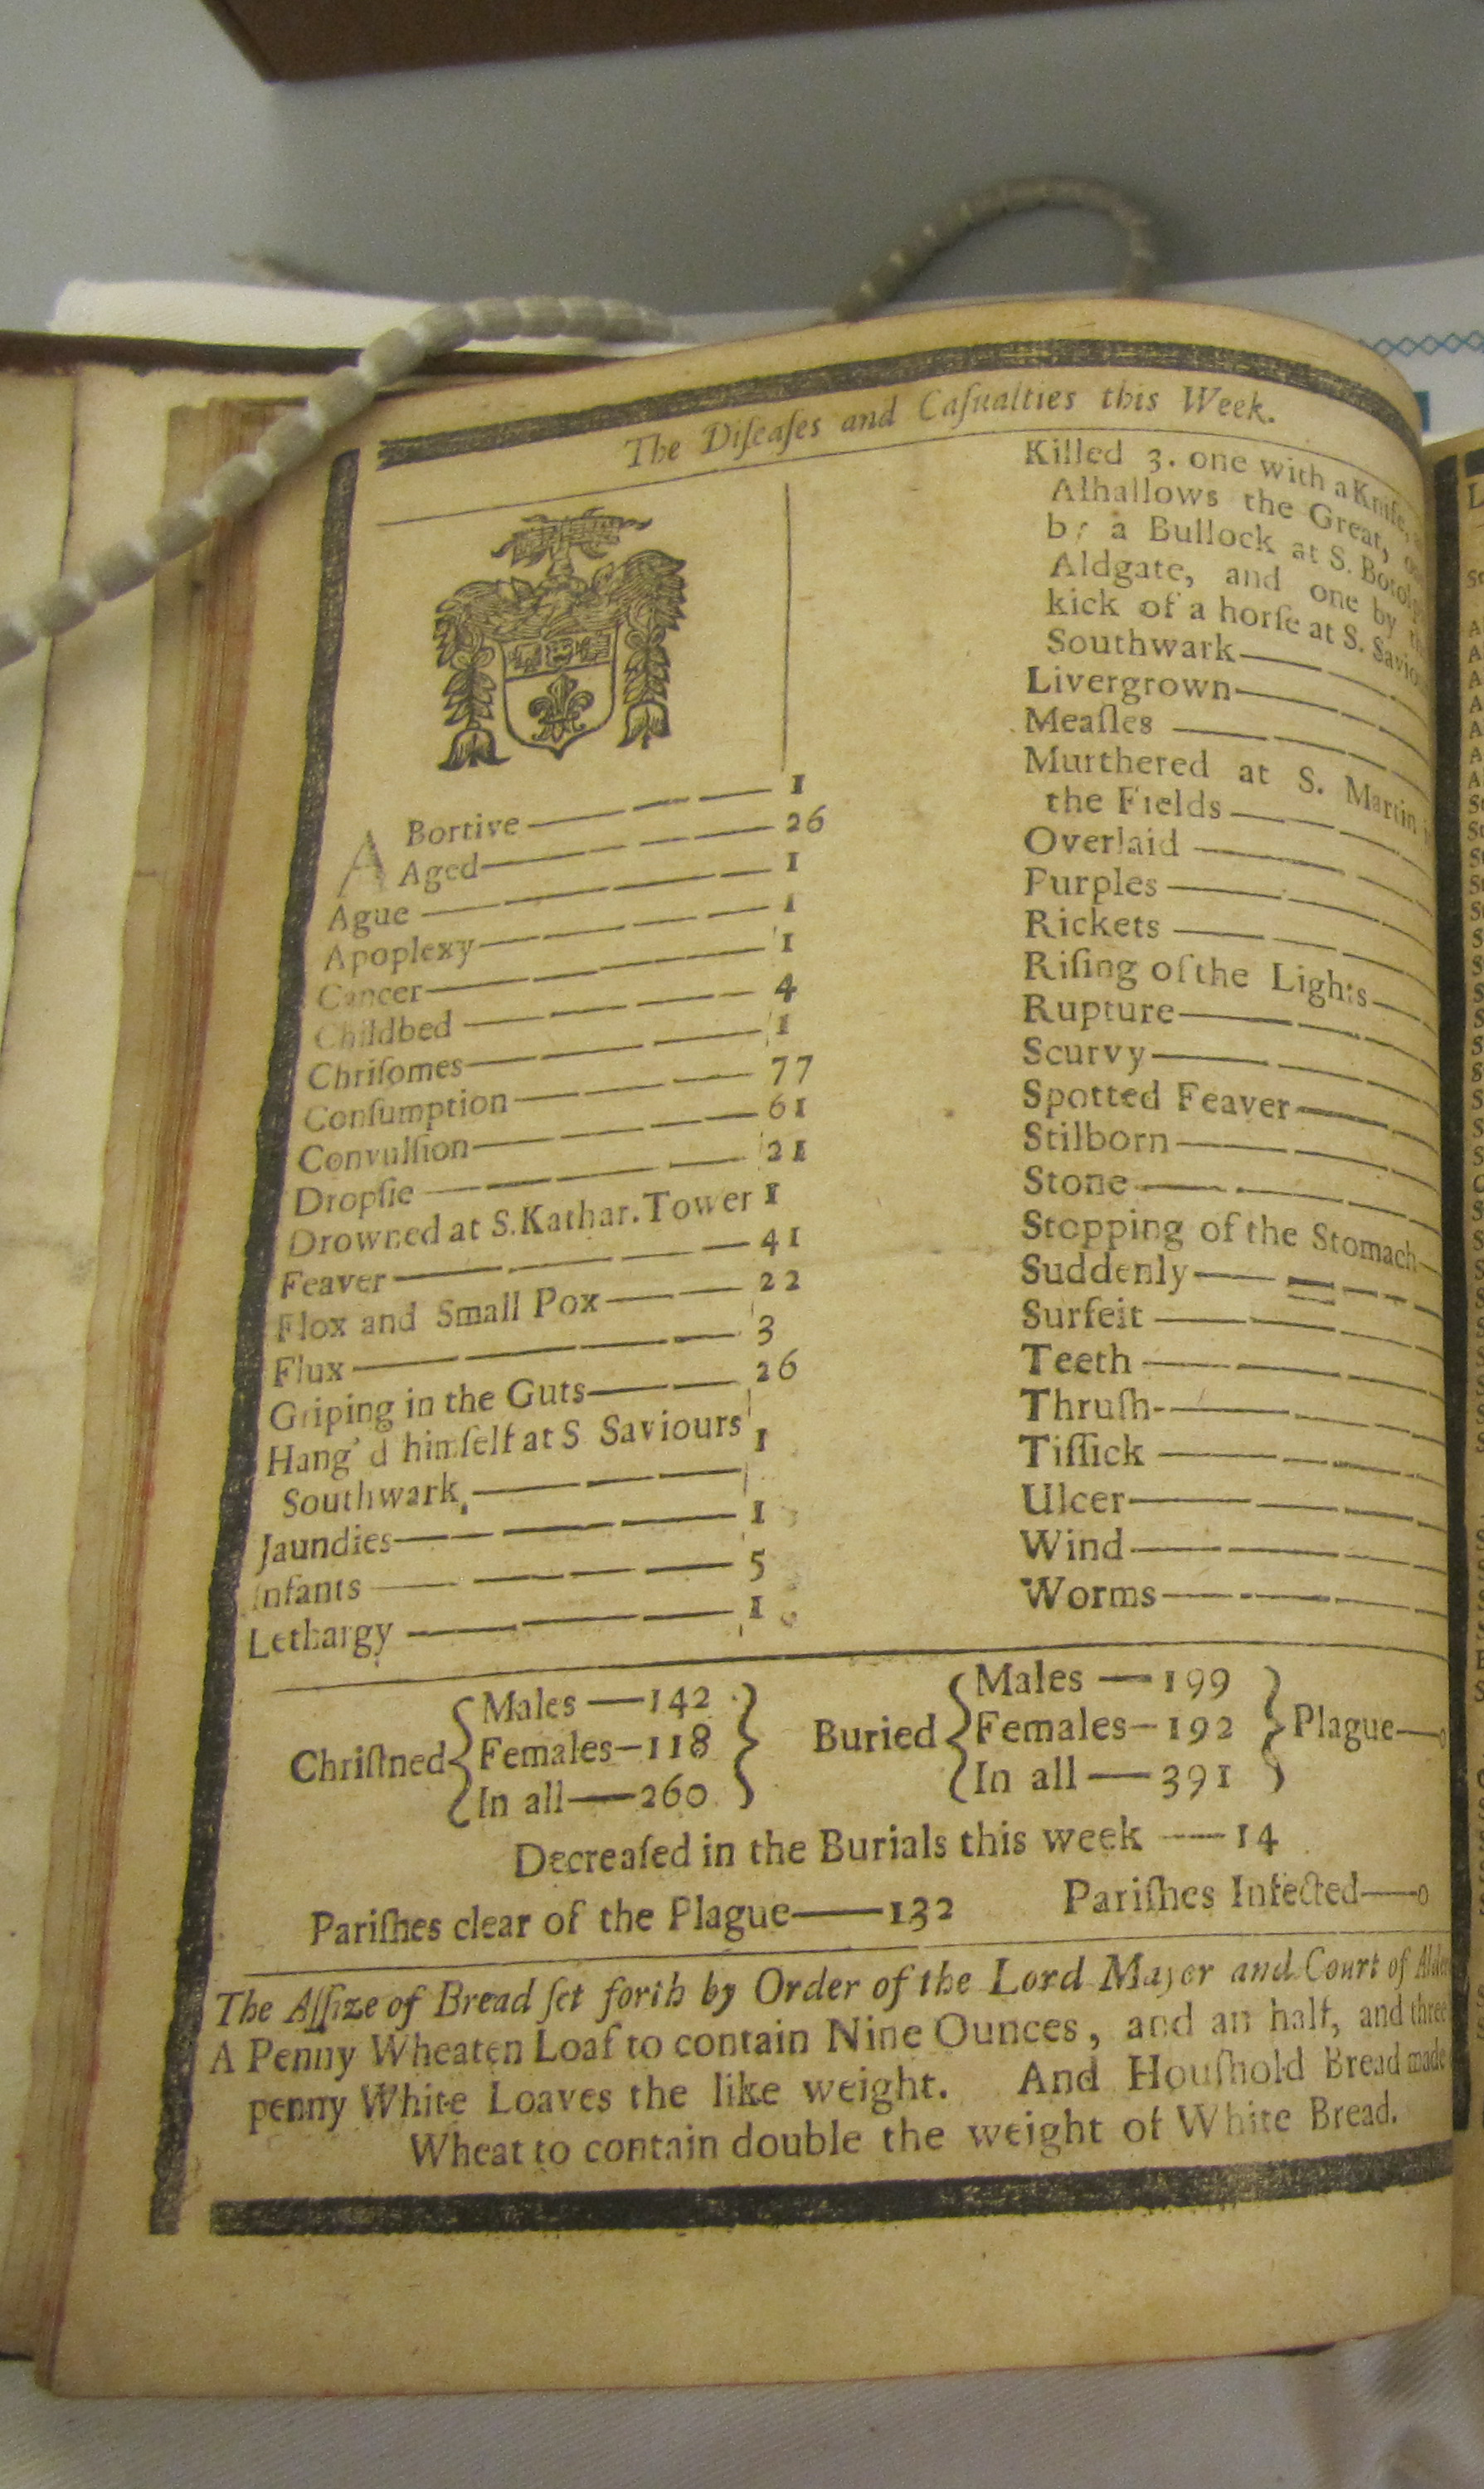 The Diſeaſes and Caſualties this Week.
A Bortive 1
Aged 26
Ague 1
Apoplexy 1
Cancer 1
Childbed 4
Chriſomes 1
Conſumption 77
Convulſion 61
Dropſie 21
Drowned at S. Kathar. Tower 1
Feaver 41
Flox and Small Pox 22
Flux 3
Griping in the Guts 26
Hang'd himſelf at S Saviours
Southwark, 1
Jaundies 1
Infants 5
Lethargy 1
Killed 3. one with a Knife,
Alhallows the Great,
by a Bullock at S.
Aldgate, and one by
kick of a horſe at S.
Southwark
Livergrown
Meaſles
Murthered at S. Martin
the Fields
Overlaid
Purples
Rickets
Riſing of the Lights
Rupture
Scurvy
Spotted Feaver
Stilborn
Stone
Stopping of the Stomach
Suddenly
Surfeit
Teeth
Thruſh
Tiſſick
Ulcer
Wind
Worms
Chriſtned
Males — 142
Females — 118
In all — 260
Buried
Males — 199
Females — 192
In all — 391
Plague — 0
Decreaſed in the Burials this week — 14
Pariſhes clear of the Plague — 132 Pariſhes Infected — 0
The Aſſize of Bread ſet forth by Order of the Lord Mayor and Court of
A Penny Wheaten Loaf to contain Nine Ounces, and an half, and three
penny White Loaves the like weight. And Houſhold Bread made
Wheat to contain double the weight of White Bread.